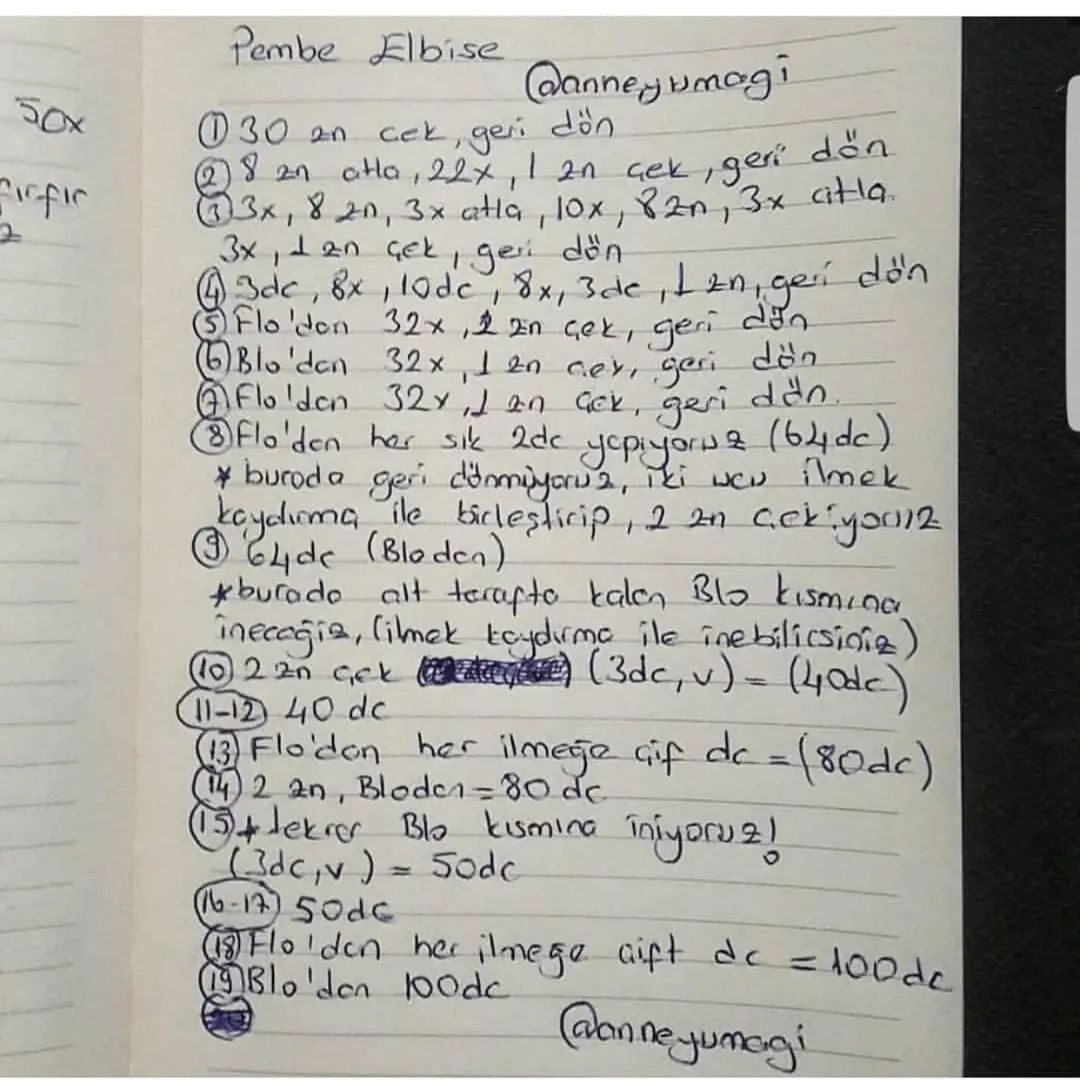 50x
fırfır
2
Pembe Elbise
@anneyumagi
① 30 zn çek, geri dön
② 8 zn atla, 22x, 1 zn çek, geri dön
③ 3x, 8 zn, 3x atla, 10x, 8zn, 3x atla.
3x, 1 zn çek, geri dön
④ 3dc, 8x, 10dc, 8x, 3dc, 1 zn, geri dön
⑤ Flo'dan 32x, 1 zn çek, geri dön
⑥ Blo'dan 32x, 1 zn çek, geri dön
⑦ Flo'dan 32x, 1 zn çek, geri dön.
⑧ Flo'dan her sık 2dc yapıyoruz (64dc)
* burada geri dönmüyoruz, iki ucu ilmek
kaydırma ile birleştirip, 2 zn çekiyoruz
⑨ 64dc (Blodan)
* burada alt tarafta kalan Blo kısmına
ineceğiz, (ilmek kaydırma ile inebilirsiniz)
⑩ 2 zn çek (3dc, v) = (40dc)
11-12 40 dc
⑬ Flo'dan her ilmeğe çif dc = (80dc)
⑭ 2 zn, Blodan = 80 dc
⑮ * tekrar Blo kısmına iniyoruz!
(3dc, v) = 50dc
16-17 50dc
⑱ Flo'dan her ilmeğe çift dc = 100dc
⑲ Blo'dan 100dc
@anneyumagi